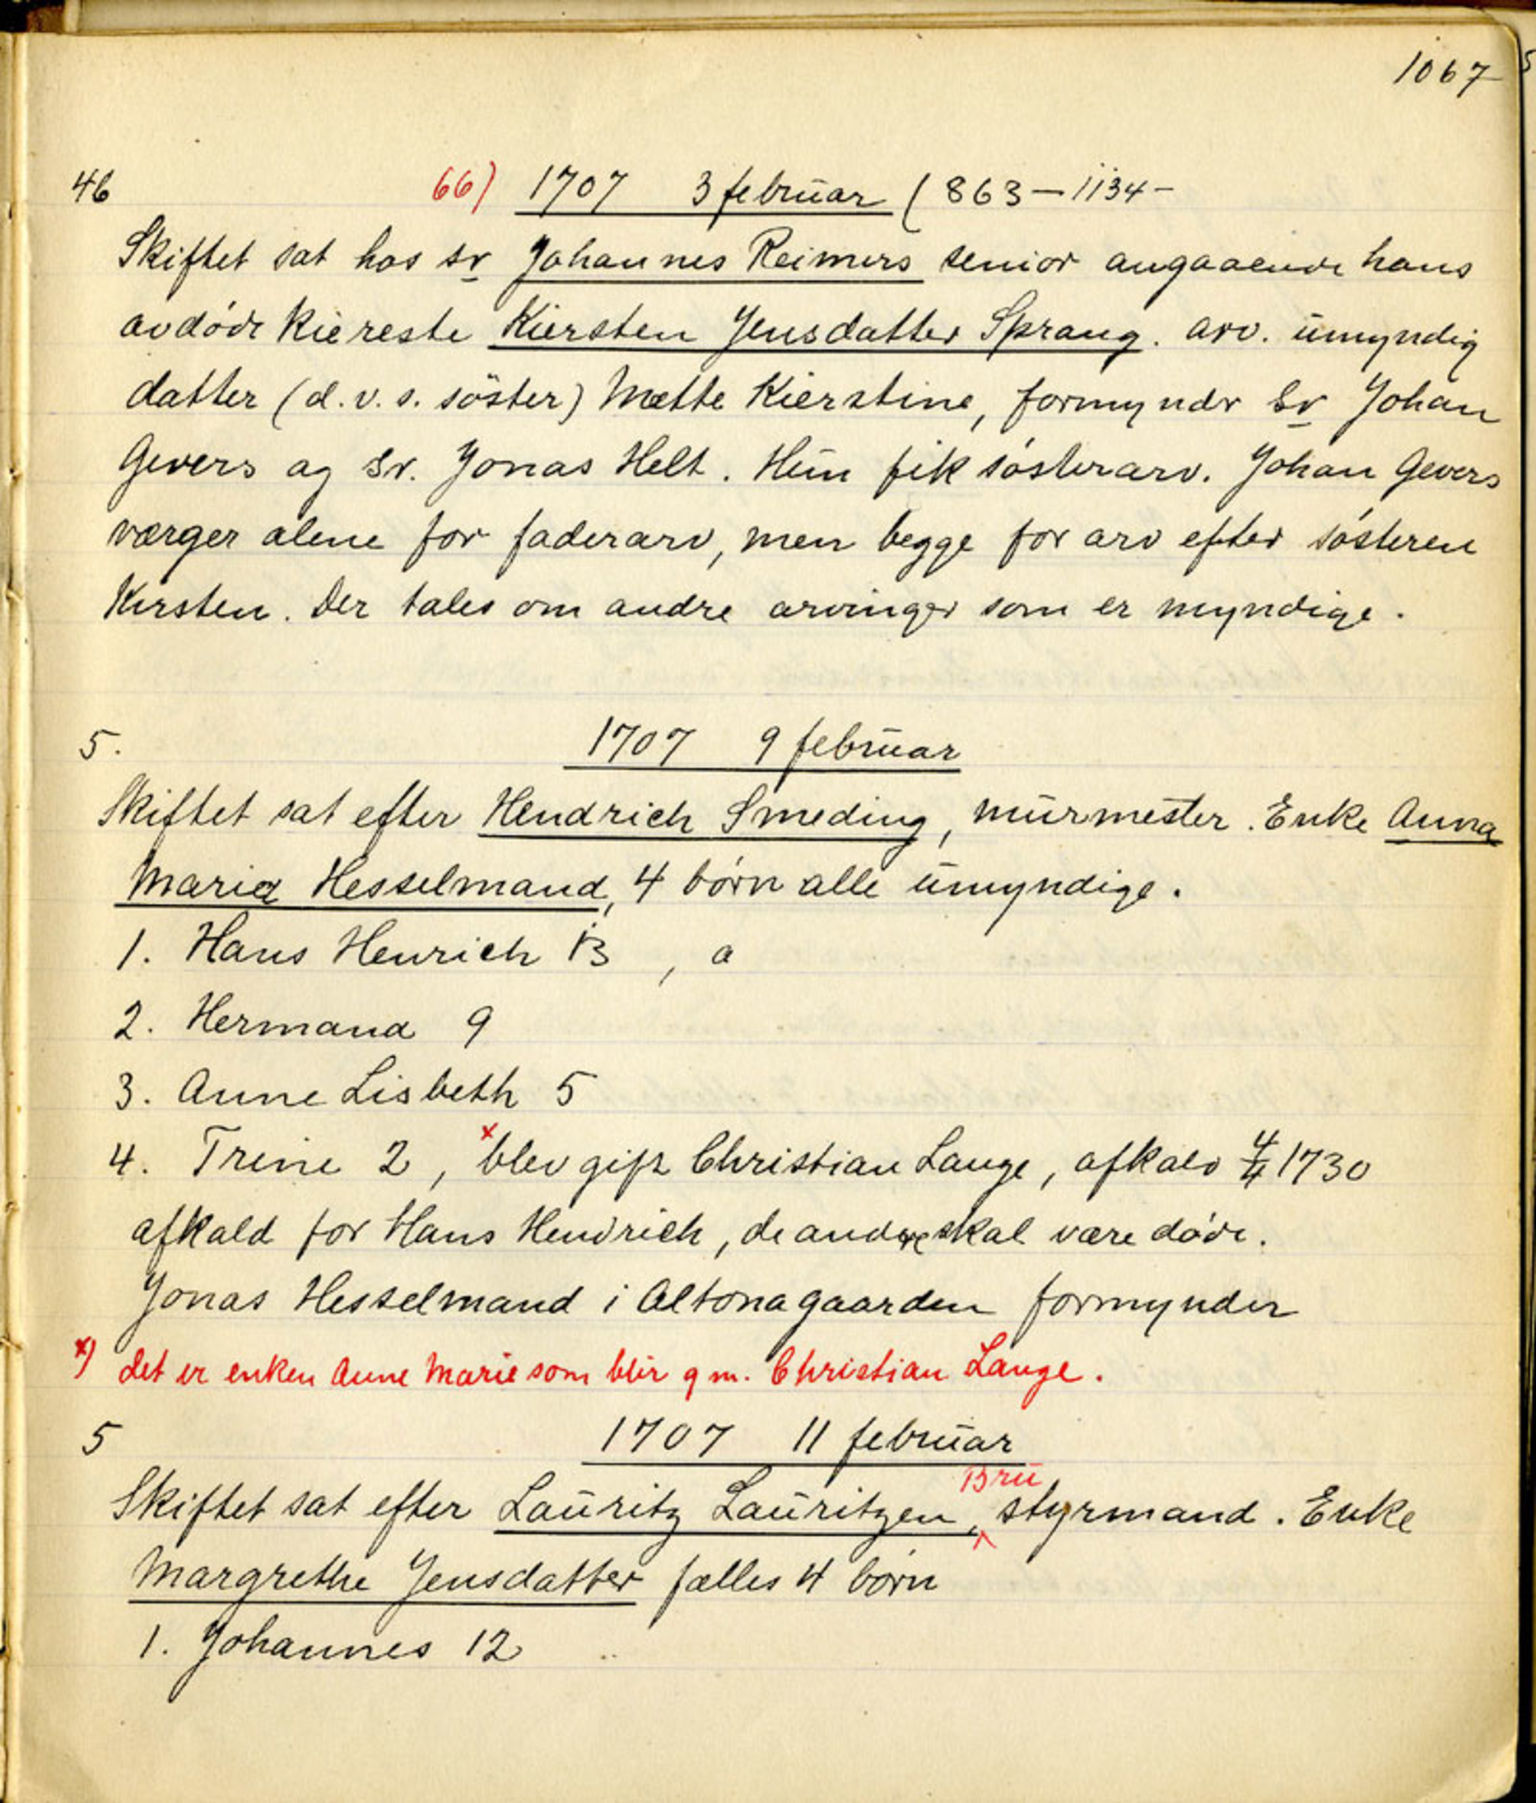 1067
46 66) 1707 3 februar (863 — 1134 —
Skiftet sat hos sr Johannes Reimers senior angaaende hans
avdøde kiereste Kiersten Jensdatter Sprang. arv. umyndig
datter (d.v.s. söster) Mette Kierstine, formyndr Sr Johan
Gevers og Sr. Jonas Helt. Hun fik søsterarv. Johan Gevers
værger alene for faderarv, men begge for arv efter søsteren
Kirsten. Der tales om andre arvinger som er myndige.
5. 1707 9 februar
Skiftet sat efter Hendrich Smeding, murmester. Enke Anna
Maria Hesselmand, 4 børn alle umyndige.
1. Hans Henrich 13 , a
2. Hermand 9
3. Anne Lisbeth 5
4. Trine 2, x blev gift Christian Lange, afkald 4/4 1730
afkald for Hans Hendrich, de andre skal være døde.
Jonas Hesselmand i Altonagaarden formynder
x) det er enken Anne Marie som blir g m. Christian Lange.
5 1707 11 februar
Skiftet sat efter Lauritz Lauritzen, Bru styrmand. Enke
Margrethe Jensdatter fælles 4 børn
1. Johannes 12